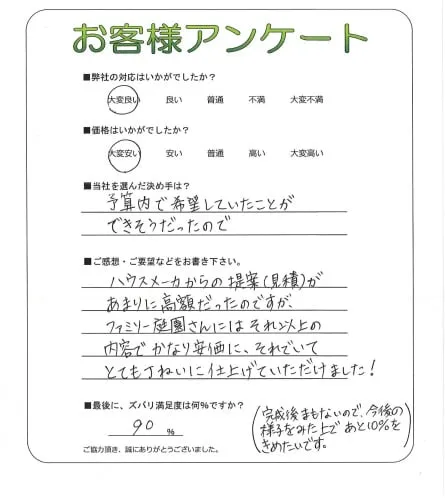 お客様アンケート
■弊社の対応はいかがでしたか?
大変良い 良い 普通 不満 大変不満
■価格はいかがでしたか?
大変安い 安い 普通 高い 大変高い
■当社を選んだ決め手は?
予算内で希望していたことが
できそうだったので
■ご感想・ご要望などをお書き下さい。
ハウスメーカからの提案(見積)が
あまりに高額だったのですが、
ファミリー庭園さんにはそれ以上の
内容でかなり安価に、それでいて
とても丁ねいに仕上げていただけました!
■最後に、ズバリ満足度は何%ですか?
90 %
(完成後まもないので、今後の
様子をみた上であと10%を
きめたいです。)
ご協力頂き、誠にありがとうございました。